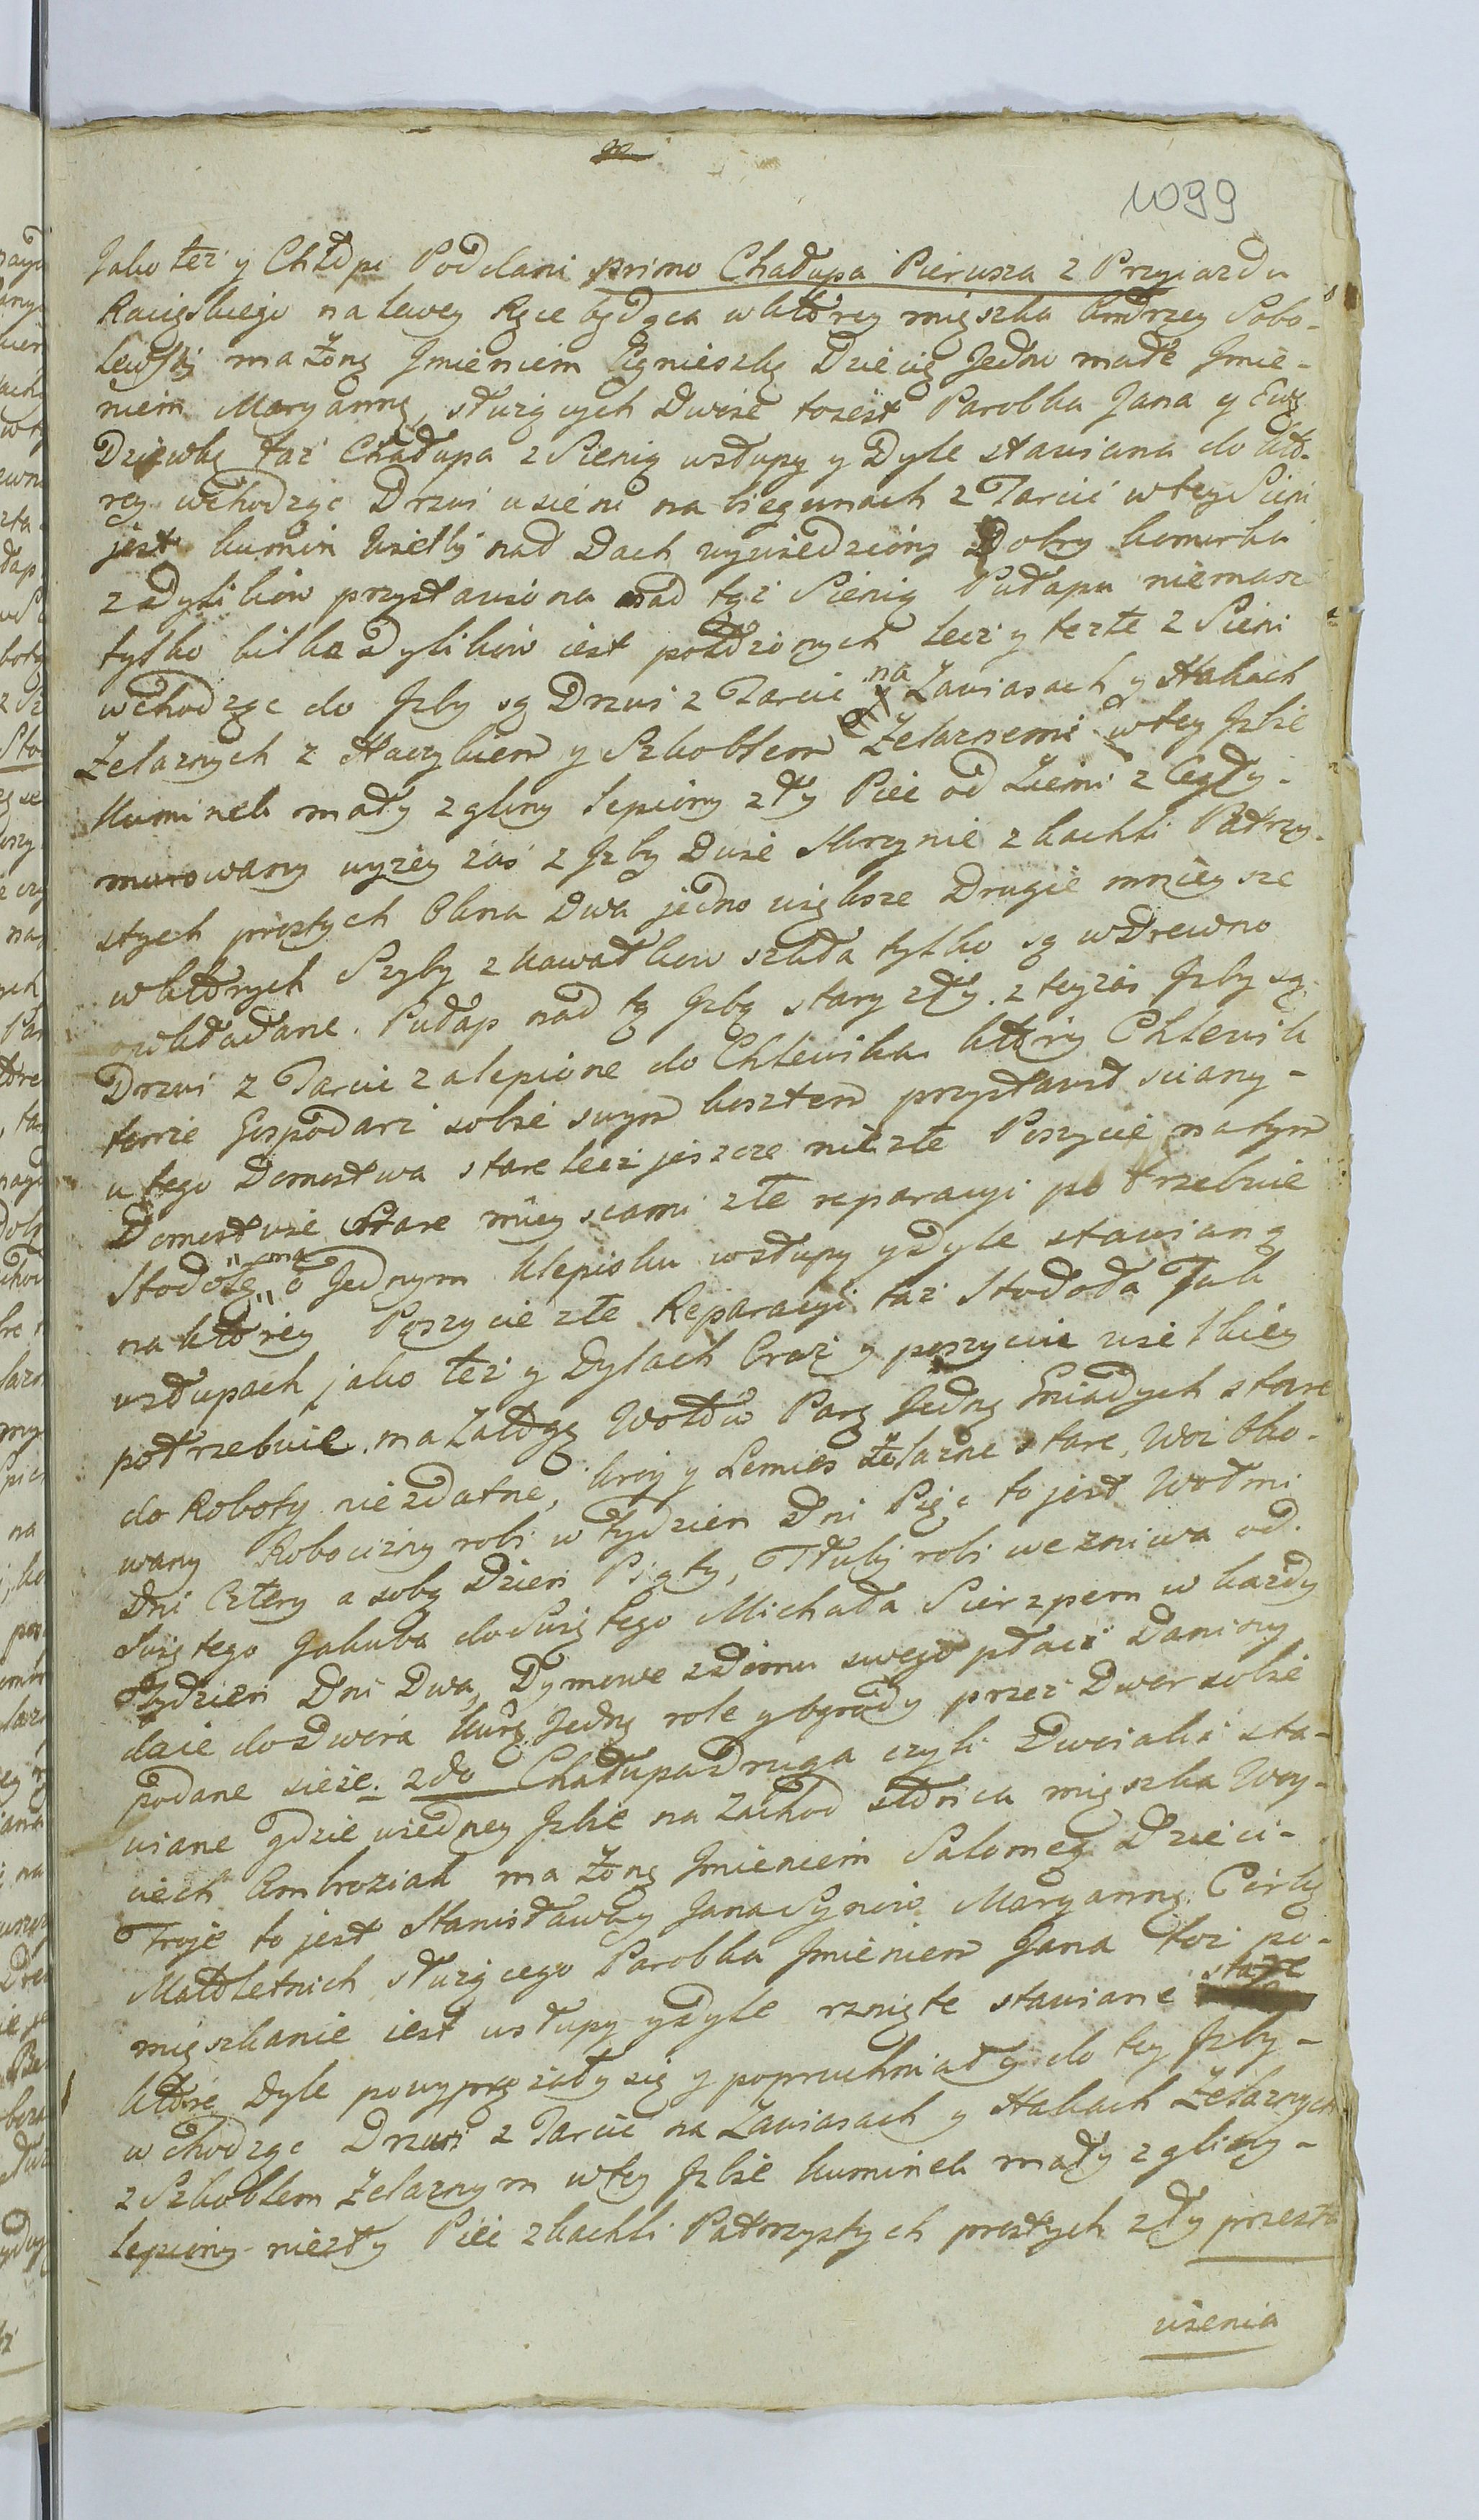 1099
Jako też y Chłopi Poddani primo Chałupa Pierwsza z Przyiazdu
Raciąskiego na lewey Ręce będąca w którey mięszka Andrzey Sobo-
lewski ma Żonę Jmieniem Agnieszkę Dziecię Jedno małe Jmie-
niem Maryannę, służących dwoie to iest Parobka Jana y Ewę
Dziewkę taż Chałupa z Sienią w słupy y Dyle stawiana do któ-
rey wchodząc Drzwi u sieni na biegunach z Tarcic w tey Sieni
jest kumin wielki nad Dach wywiedziony Dobry komurka
z dylików przystawiona nad tąż Sienią Pułapu niemasz
tylko kilka dylików iest położonych lecz y te złe z Sieni
wchodząc do Jzby są Drzwi z Tarcic na Zawiasach y Hakach
Żelaznych z Haczykiem y Skoblem Żelaznemi w tey Jzbie
Kuminek mały z gliny lepiony zły Piec od Ziemi z Cegły-
murowany wyżey zaś z Jzby dwie Skrzynie z kachli Patrzy-
stych prostych Okna dwa jedno większe Drugie mnieysze
w których Szyby z kawałków szkła tylko są w Drewno
wkładane. Pułap nad tą Jzbą stary zły. z teyżes Jzby są
Drzwi z Tarcic zalepione do Chlewika który Chlewik
tenże Gospodarz sobie swym kosztem przystawił sciany-
u tego Domostwa stare lecz jeszcze niezłe Poszycie na tym
Domostwie Stare mieyscami złe reparacyi potrzebuie
Stodołę ma o Jednym klepisku w słupy y dyle stawianą
na którey Poszycie złe Reparacyi taż Stodoła Tak
w słupach jako też y Dylach Oraz y poszyciu wielkiey
potrzebuie. ma Załogę Wołów Parę Jedną Gniadych stare
do Roboty niezdatne, kroy y Lemiesz żelazne stare, Woz Oko-
wany Robocizny robi w tydzień Dni Pięć to jest Wołmi
Dni Cztery a sobą dzień Piąty, Tłuki robi we zniwa od.
Swiętego Jakuba do Swiętego Michała Sierzpem w kazdy
Tydzień Dni Dwa, Dymowe z domu swego płaci Daniny
daie do Dwora kurę Jedną role y ogrody przez Dwor sobie
podane sieie. 2do Chałupa Druga czyli Dwoiaki sta-
wiane gdzie w iedney Jzbie na Zachod słońca mięszka Woy-
ciech Ambroziak ma Żonę Jmieniem Salomeę Dzieci-
Troje to jest Stanisława y Jana Synów Maryannę Córkę
Małoletnich służącego Parobka Jmieniem Jana toż po-
mięszkanie iest w słupy y dyle rznięte stawiane stare
które Dyle powyprężały się y popruchniały do tey Jzby-
wchodząc Drzwi z Tarcic na Zawiasach y Hakach Żelaznych
z Skoblem Żelaznym w tey Jzbie kuminek mały z gliny-
lepiony niezły Piec z kachli Patrzystych prostych zły przesta
wienia